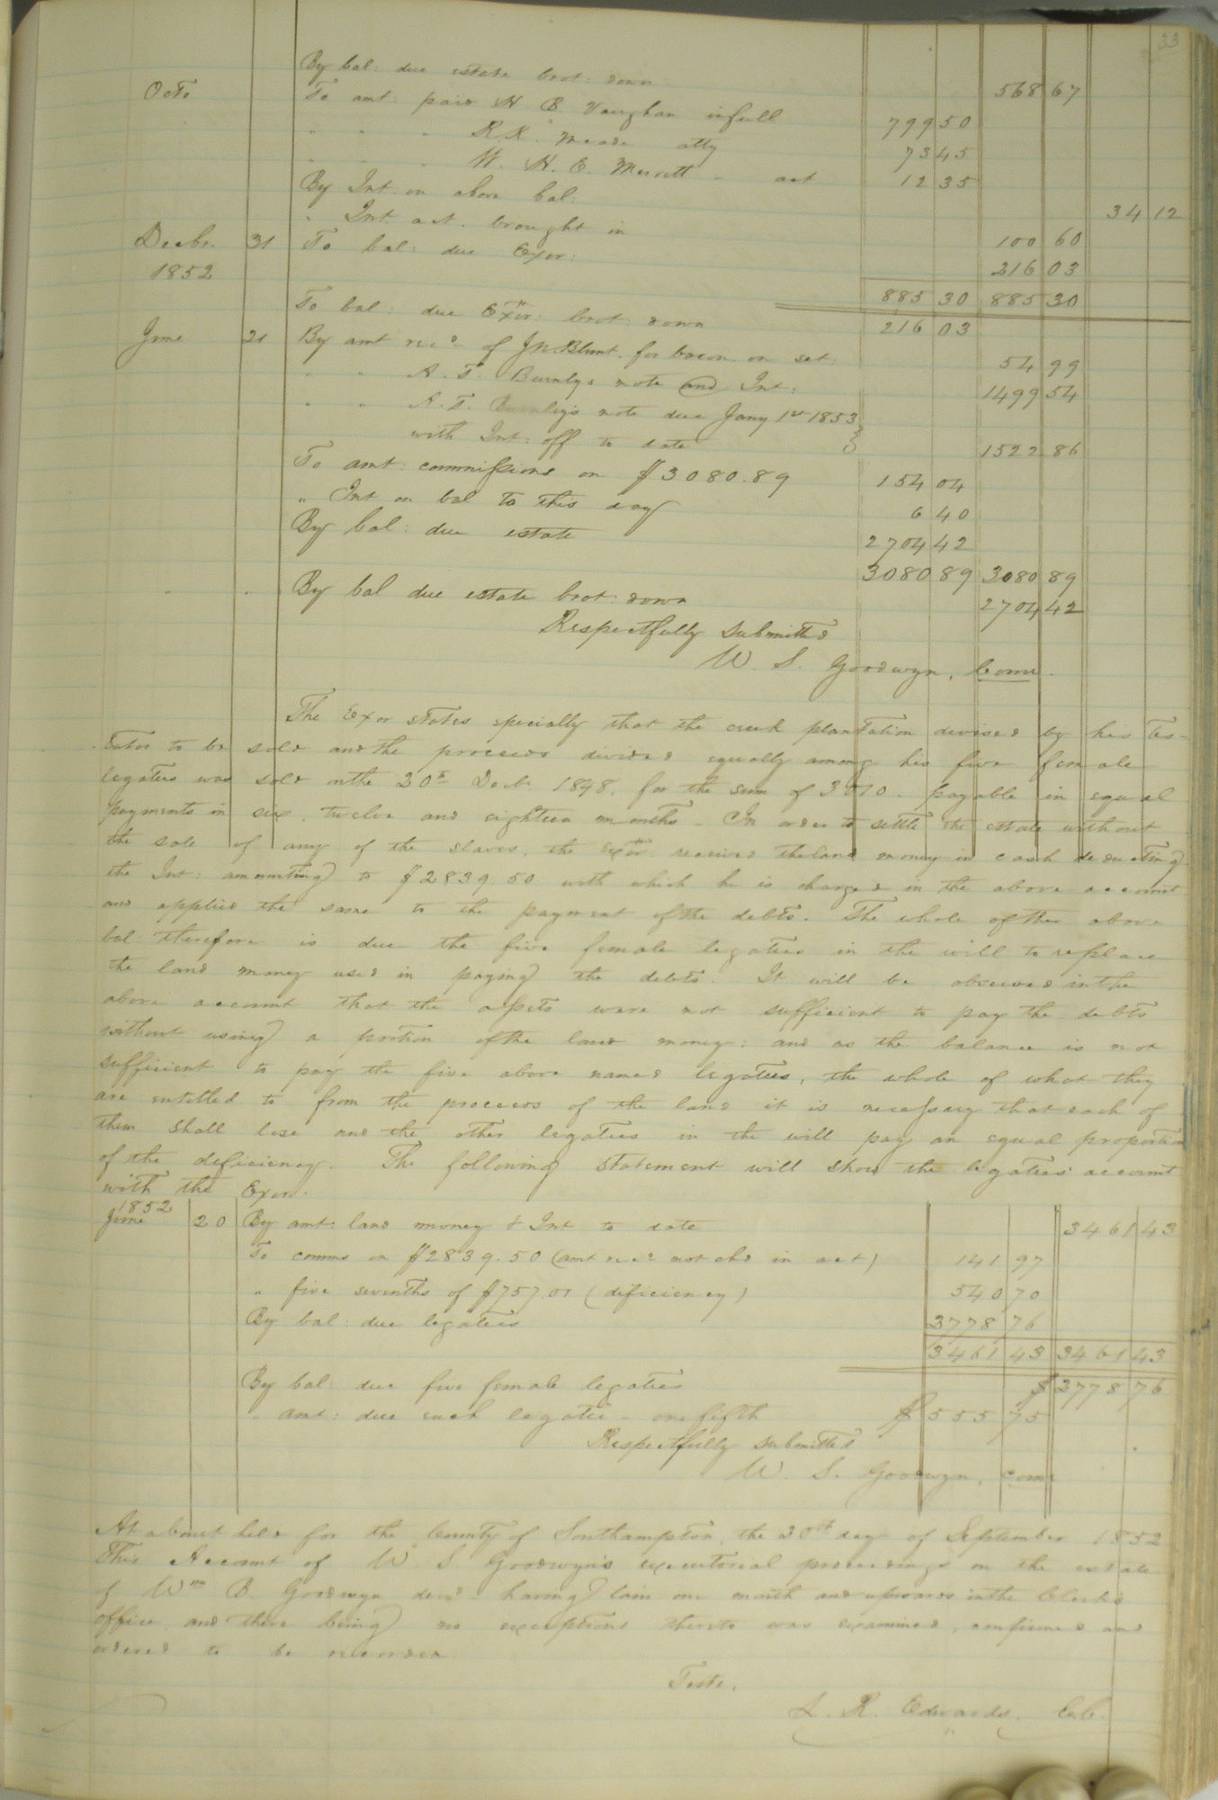 33
By bal: due estate brot: down 568 67
Octo To amt: paid H B. Vaughan in full 799 50
" " " R. K. Meade atty 73 45
" " " W. H. E. Merritt - act 12 35
By Int. on above bal: 34 12
" Int. act. brought in 100 60
Decbr 31 To bal: due Exor: 216 03
1852 885 30 885 30
To bal: due Exor: brot: down 216 03
June 21 By amt recd of J N Blunt. for bacon on set. 54 99
" " A. T. Burnlys note and Int: 1499 54
" " A. T. Burnley's note due Jany 1st 1853
with Int: off to date 1522 86
To amt: commissions on $3080.89 154 04
" Int on bal to this day 6 40
By bal: due estate 2704 42
3080 89 3080 89
By bal due estate brot: down 2704 42
Respectfully submitted
W. S. Goodwyn, Comr.
The Exor states specially that the creek plantation devised by his Tes-
tator to be sold and the proceeds divided equally among his five female
legatees was sold on the 20th Decbr. 1848, for the sum of 3010. payable in equal
payments in six, twelve and eighteen months - In order to settle the estate without
the sale of any of the slaves, the Exor received the land money in cash deducting
the Int: amounting to $2839.50 with which he is charged in the above account
and applied the same to the payment of the debts. The whole of the above
bal therefore is due the five female legatees in the will to replace
the land money used in paying the debts. It will be observed in the
above account that the assets were not sufficient to pay the debts
without using a portion of the land money: and as the balance is not
sufficient to pay the five above named legatees, the whole of what they
are entitled to from the proceeds of the land it is necessary that each of
them shall lose and the other legatees in the will pay an equal proportion
of the deficiency. The following statement will show the legatees account
with the Exor.
1852
June 20 By amt: land money & Int to date 3461 43
To comms on $2839.50 (amt recd not chd in act) 141 97
" five sevenths of $757.01 (deficiency) 540 70
By bal: due legatees 2778 76
3461 43 3461 43
By bal: due five female legatees $2778 76
" amt: due each legatee - one fifth $555 75
Respectfully submitted
W. S. Goodwyn, Comr
At a court held for the County of Southampton, the 20th day of September 1852
This Account of W. S. Goodwyn's executorial proceedings on the estate
of Wm B. Goodwyn decd having lain one month and upwards in the Clerks
office and there being no exceptions thereto was examined, confirmed and
ordered to be recorded
Teste,
L. R. Edwards, C.C.